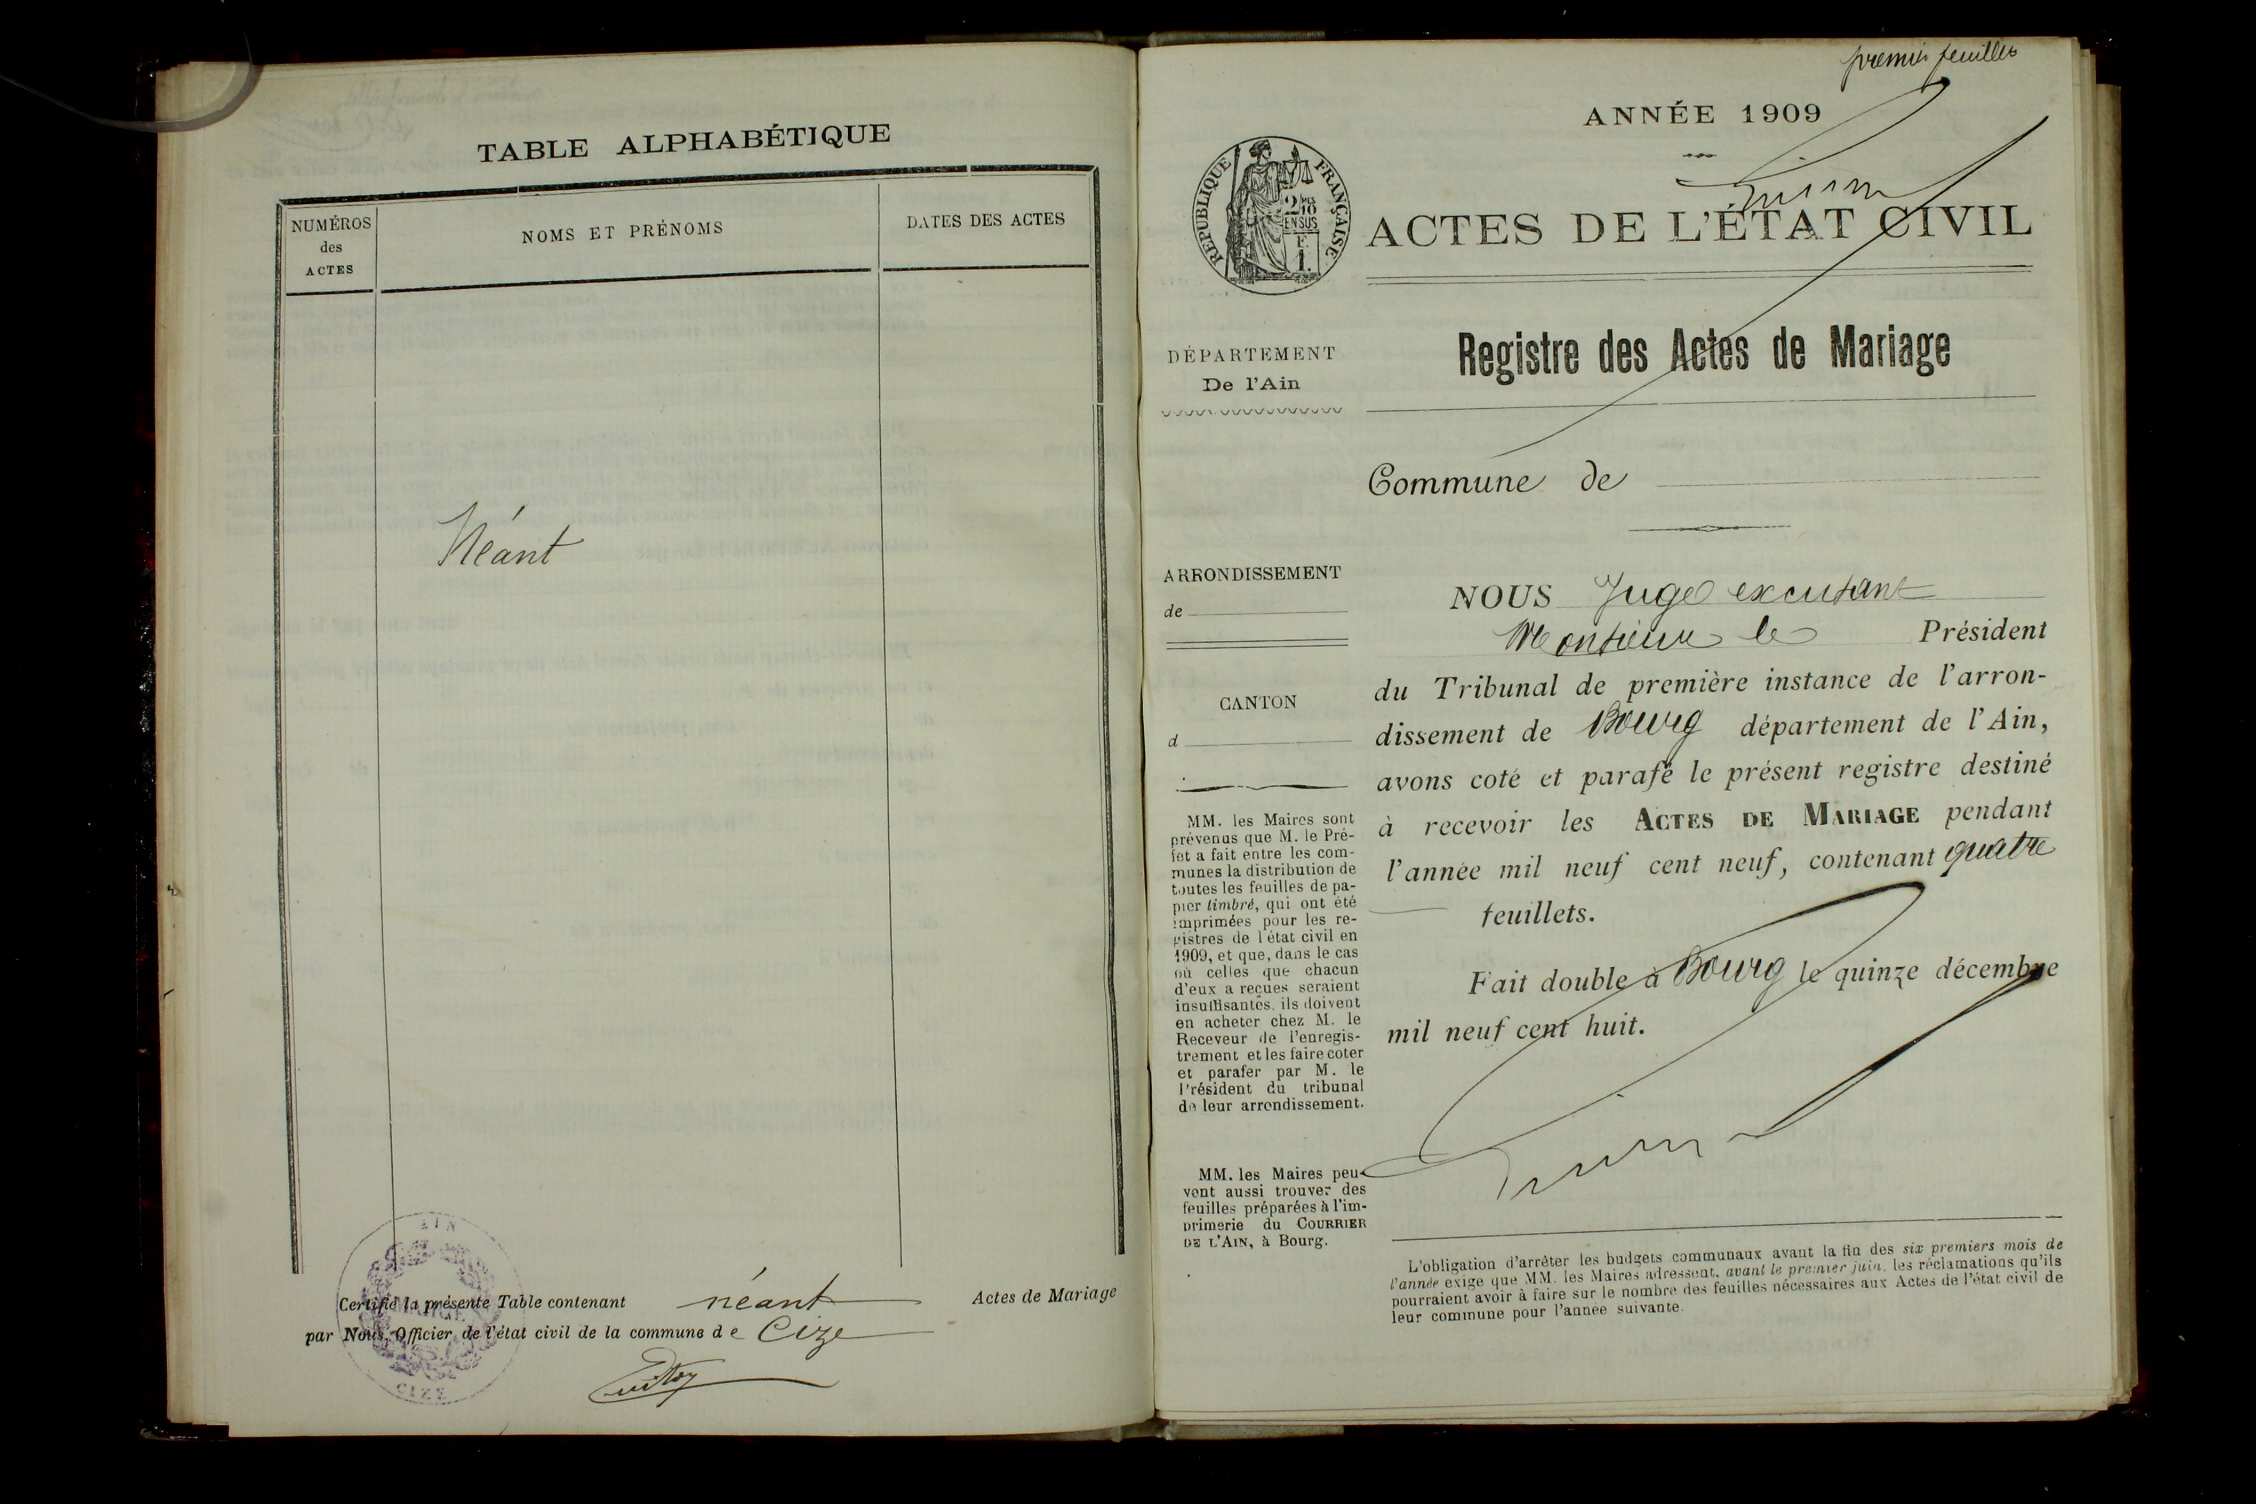 TABLE ALPHABÉTIQUE
NUMÉROS
des
ACTES
NOMS ET PRÉNOMS
DATES DES ACTES
Néant
Certifié la présente Table contenant néant Actes de Mariage
par Nous, Officier de l'état civil de la commune de Cize
AIN
MAIRIE
CIZE
premier feuillet
ANNÉE 1909
RÉPUBLIQUE FRANÇAISE
2/10
EN SUS
F.
1.
ACTES DE L'ÉTAT CIVIL
DÉPARTEMENT
De l'Ain
Registre des Actes de Mariage
Commune de
ARRONDISSEMENT
de
CANTON
d
MM. les Maires sont
prévenus que M. le Pré-
fet a fait entre les com-
munes la distribution de
toutes les feuilles de pa-
pier timbré, qui ont été
imprimées pour les re-
gistres de l'état civil en
1909, et que, dans le cas
où celles que chacun
d'eux a reçues seraient
insuffisantes, ils doivent
en acheter chez M. le
Receveur de l'enregis-
trement et les faire coter
et parafer par M. le
Président du tribunal
de leur arrondissement.
MM. les Maires peu-
vent aussi trouver des
feuilles préparées à l'im-
primerie du COURRIER
DE L'AIN, à Bourg.
NOUS Juge excusant
Monsieur le Président
du Tribunal de première instance de l'arron-
dissement de Bourg département de l'Ain,
avons coté et parafé le présent registre destiné
à recevoir les ACTES DE MARIAGE pendant
l'année mil neuf cent neuf, contenant quatre
feuillets.
Fait double à Bourg le quinze décembre
mil neuf cent huit.
L'obligation d'arrêter les budgets communaux avant la fin des six premiers mois de
l'année exige que MM. les Maires adressent, avant le premier juin, les réclamations qu'ils
pourraient avoir à faire sur le nombre des feuilles nécessaires aux Actes de l'état civil de
leur commune pour l'année suivante.